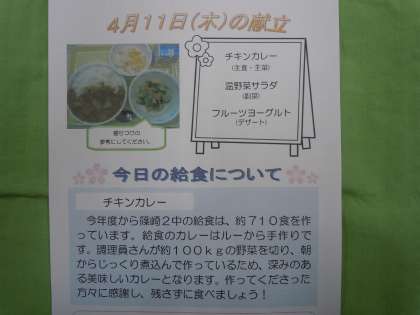 4月11日(木)の献立
チキンカレー
(主食・主菜)
温野菜サラダ
(副菜)
フルーツヨーグルト
(デザート)
盛りつけの
参考にしてください。
今日の給食について
チキンカレー
今年度から篠崎2中の給食は、約710食を作
っています。給食のカレーはルーから手作りで
す。調理員さんが約100kgの野菜を切り、朝
からじっくり煮込んで作っているため、深みのあ
る美味しいカレーとなります。作ってくださった
方々に感謝し、残さずに食べましょう！